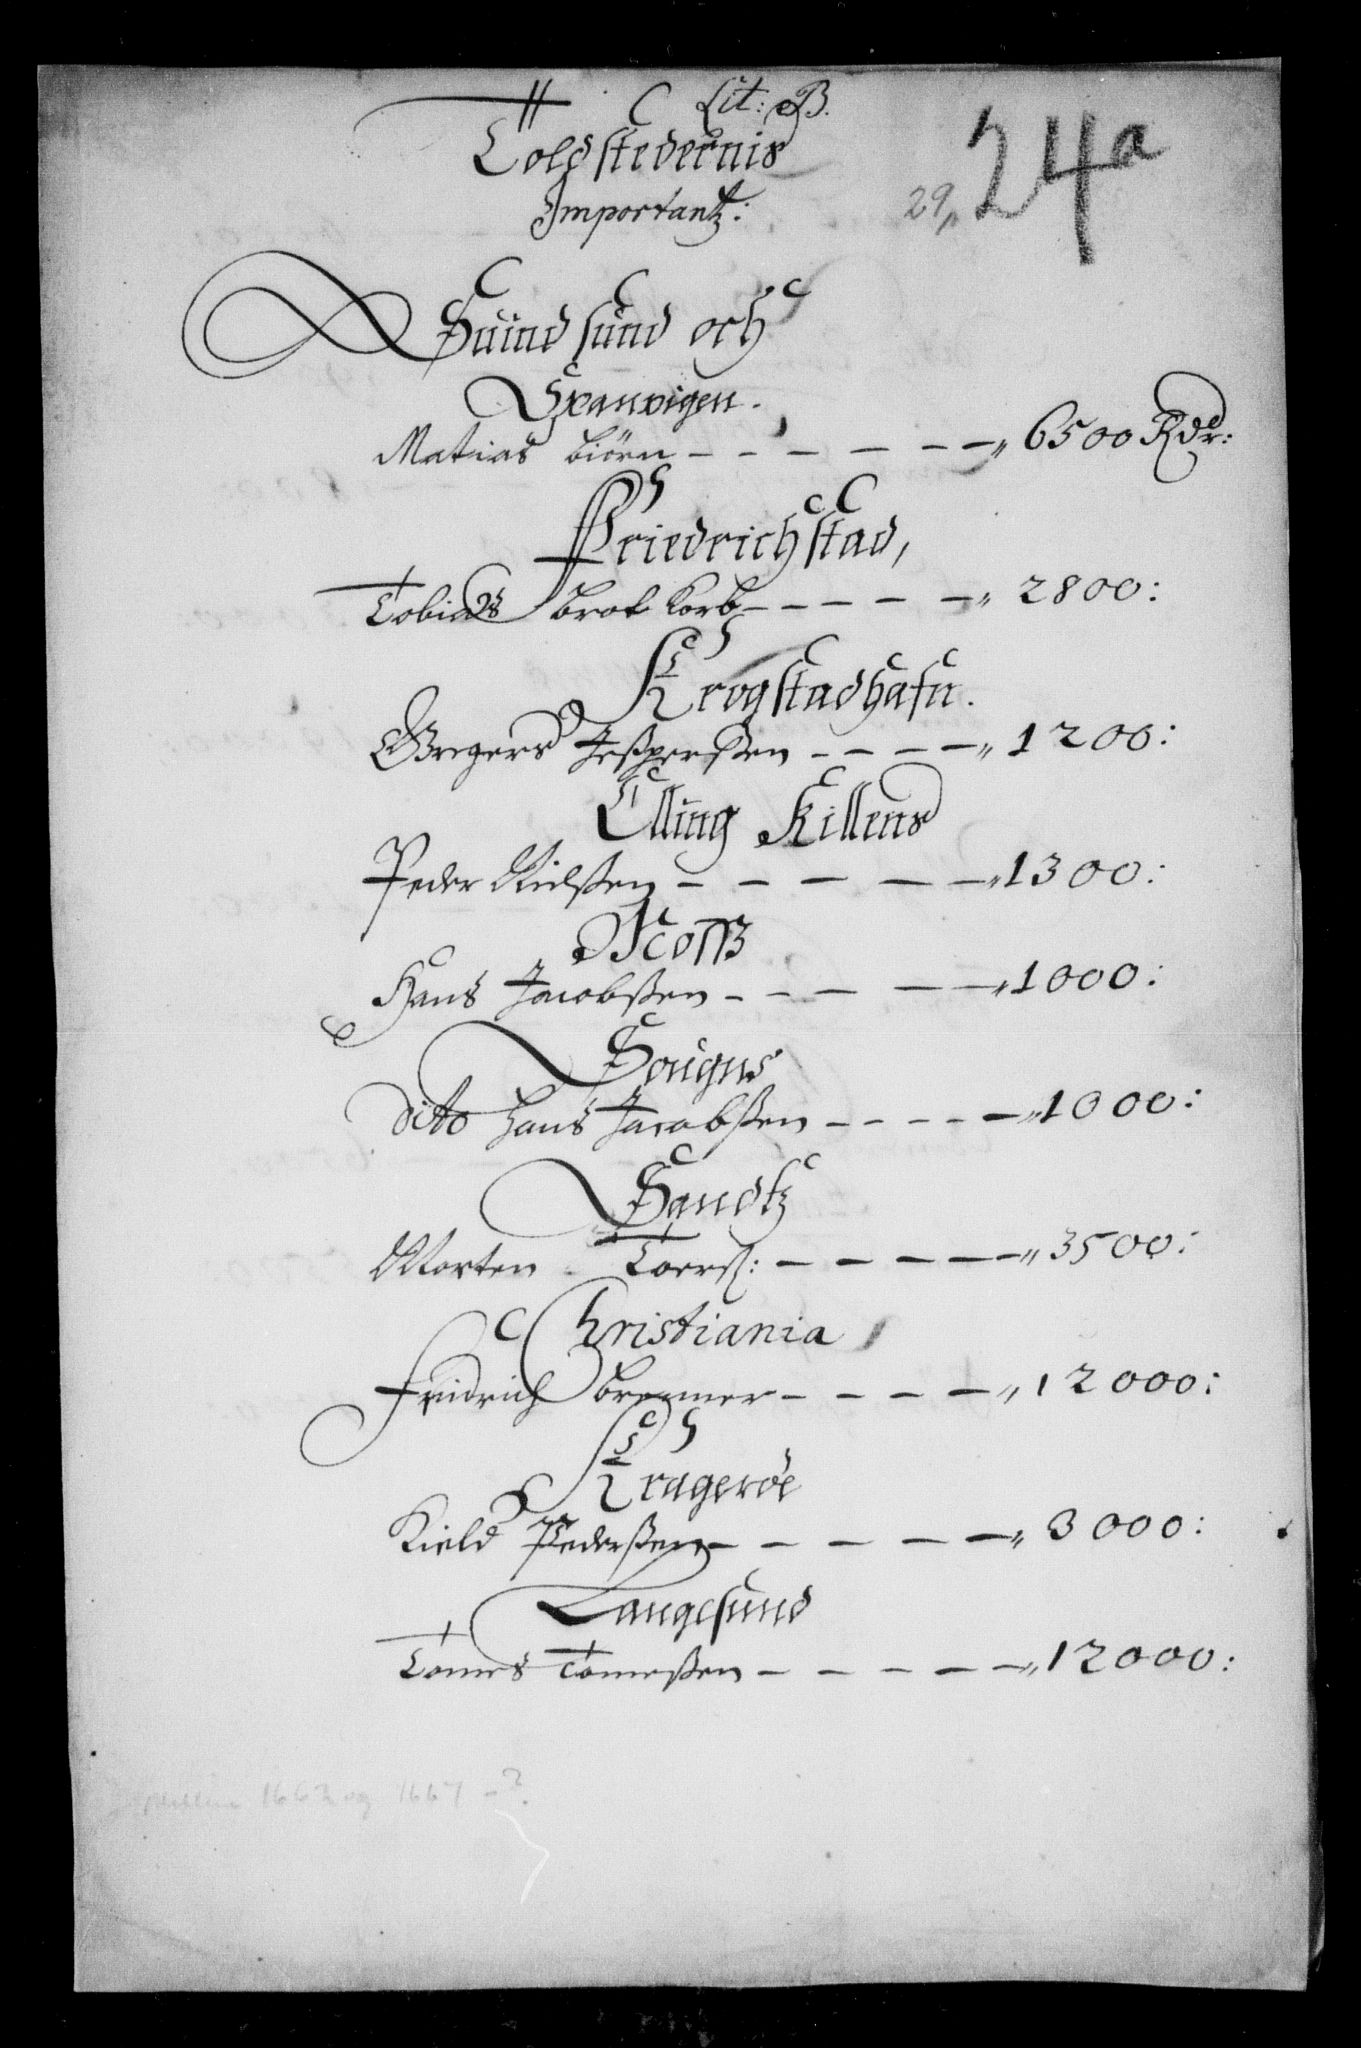 Lit: B.
Toldstedernis
Importantz:
29, 24a
Suind sund och
Spanvigen.
Matias biörn - - - - - - 6500 Rdr:
Friedrichstad,
Tobias brokkorb - - - - - 2800:
Krogstadhafn.
Gregers Jespersßen - - - - 1200:
Elling Killens
Peder Nielsßen - - - - - 1300:
Moss
Hans Jacobsßen - - - - - 1000:
Sougns
Dito Hans Jacobsßen - - - - 1000:
Sandtz
Morten Loers: - - - - - 3500:
Christiania
Fridrich bremer - - - - 12000:
Krageröe
Kield Pedersßen - - - - - 3000:
Langesund
Tomes Tomesßen - - - - - 12000:
mellem 1662 og 1667 - ?